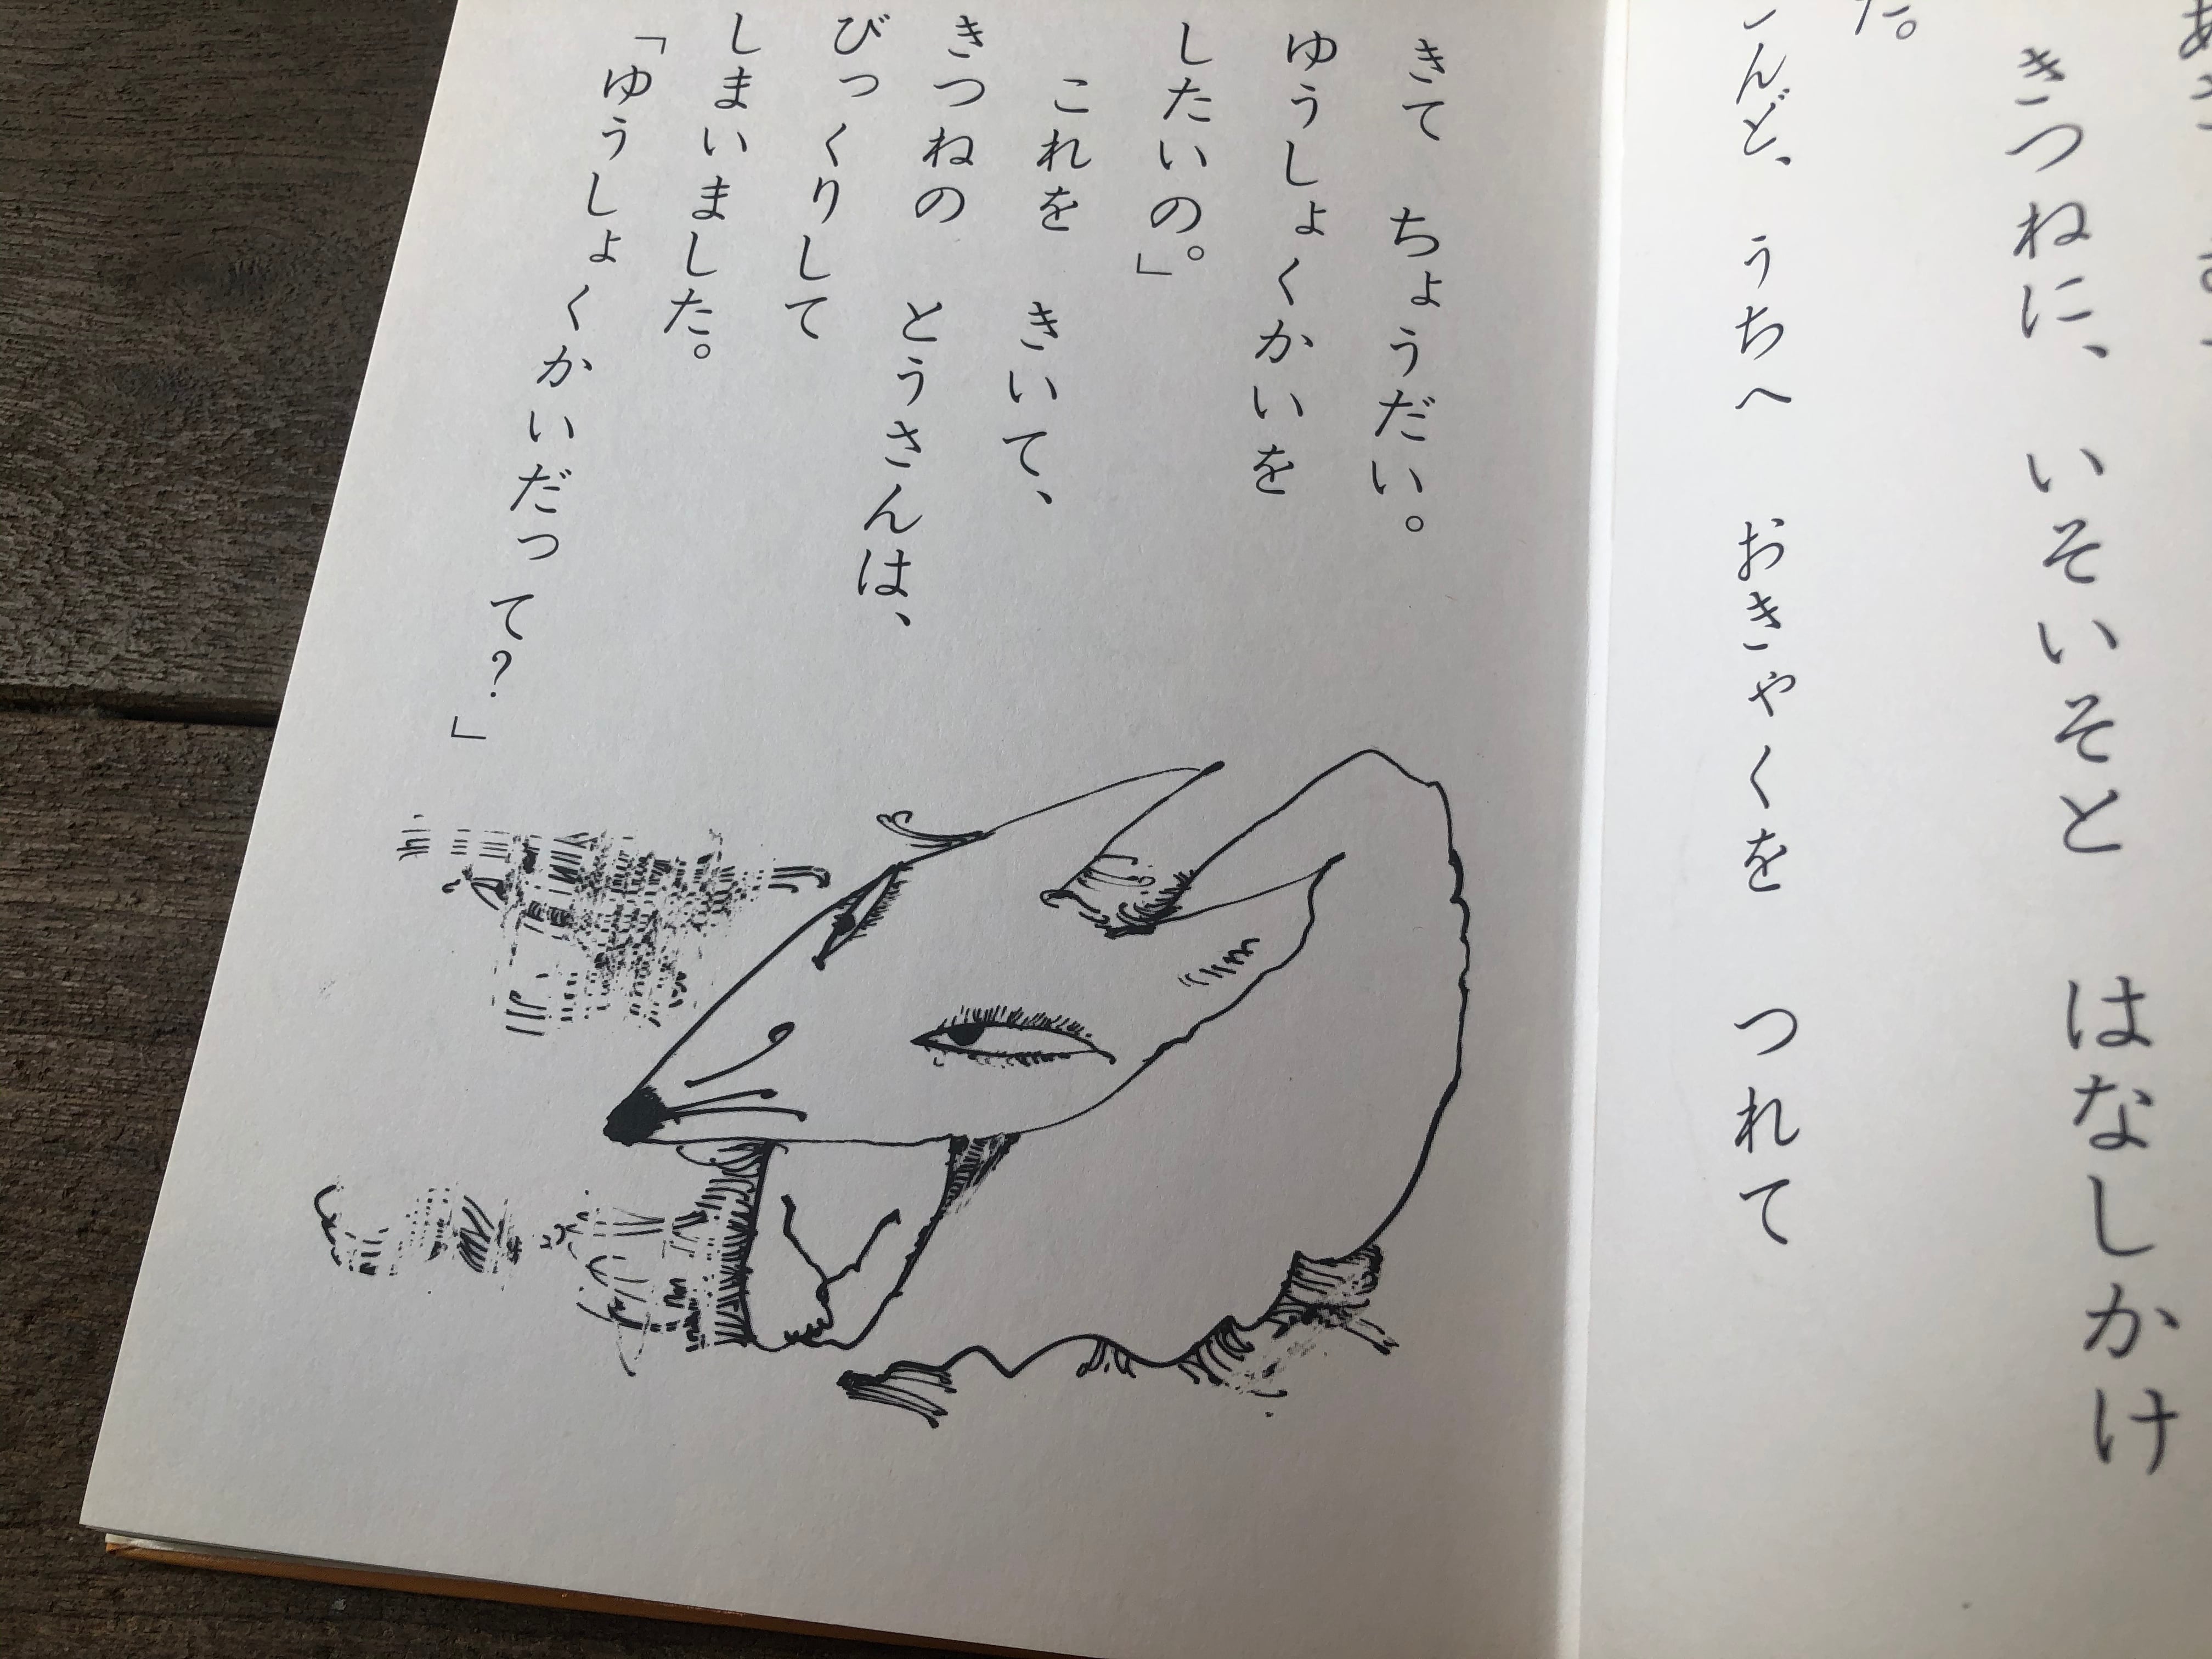 きつねに、いそいそと はなしかけ
た。
んど、 うちへ おきゃくを つれて
きて ちょうだい。
ゆうしょくかいを
したいの。」
これを きいて、
きつねの とうさんは、
びっくりして
しまいました。
「ゆうしょくかいだって?」